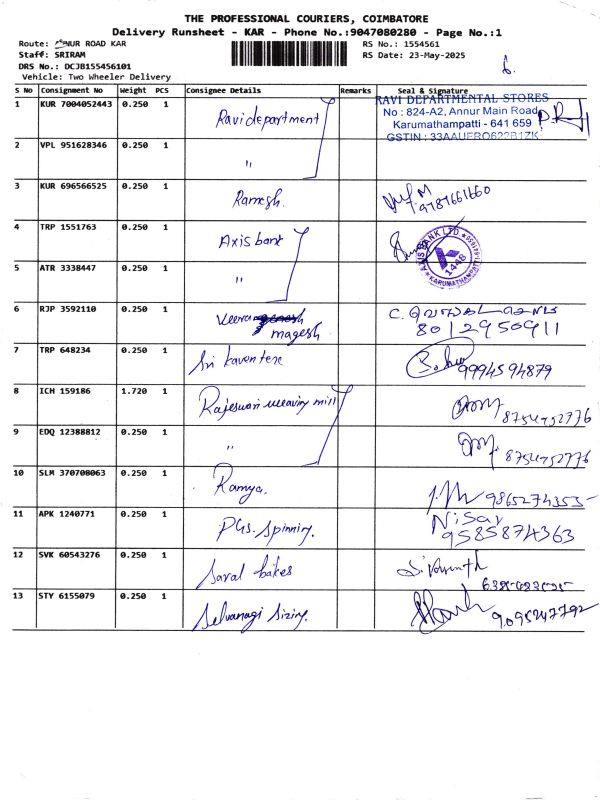 THE PROFESSIONAL COURIERS, COIMBATORE
Delivery Runsheet - KAR - Phone No.:9047080280 - Page No.:1
Route: NUR ROAD KAR
RS No.: 1554561
Staff: SRIRAM
RS Date: 23-May-2025
DRS No.: DCJB155456101
Vehicle: Two Wheeler Delivery
S No Consignment No Weight PCS Consignee Details Remarks Seal & Signature
1 KUR 7004052443 0.250 1 Ravi department
RAVI DEPARTMENTAL STORES
No : 824-A2, Annur Main Road
Karumathampatti - 641 659
GSTIN : 33AAUFRO622B1ZK
2 VPL 951628346 0.250 1 "
3 KUR 696566525 0.250 1 Ramesh. 9787661660
4 TRP 1551763 0.250 1 Axis bank
AXIS BANK LTD
1448
KARUMATHAMPATTI
5 ATR 3338447 0.250 1 "
6 RJP 3592110 0.250 1 Veera magesh
8012950911
7 TRP 648234 0.250 1 Sri kaventere 9994594879
8 ICH 159186 1.720 1 Rajeswari weaving mill 8754752776
9 EDQ 12388812 0.250 1 " 8754752776
10 SLM 370708063 0.250 1 Ramya. 9865274353
11 APK 1240771 0.250 1 PGS. Spinning. Nisar
9585874363
12 SVK 60543276 0.250 1 Saral bakes
13 STY 6155079 0.250 1 Selvanagi Sizing. 9095247792